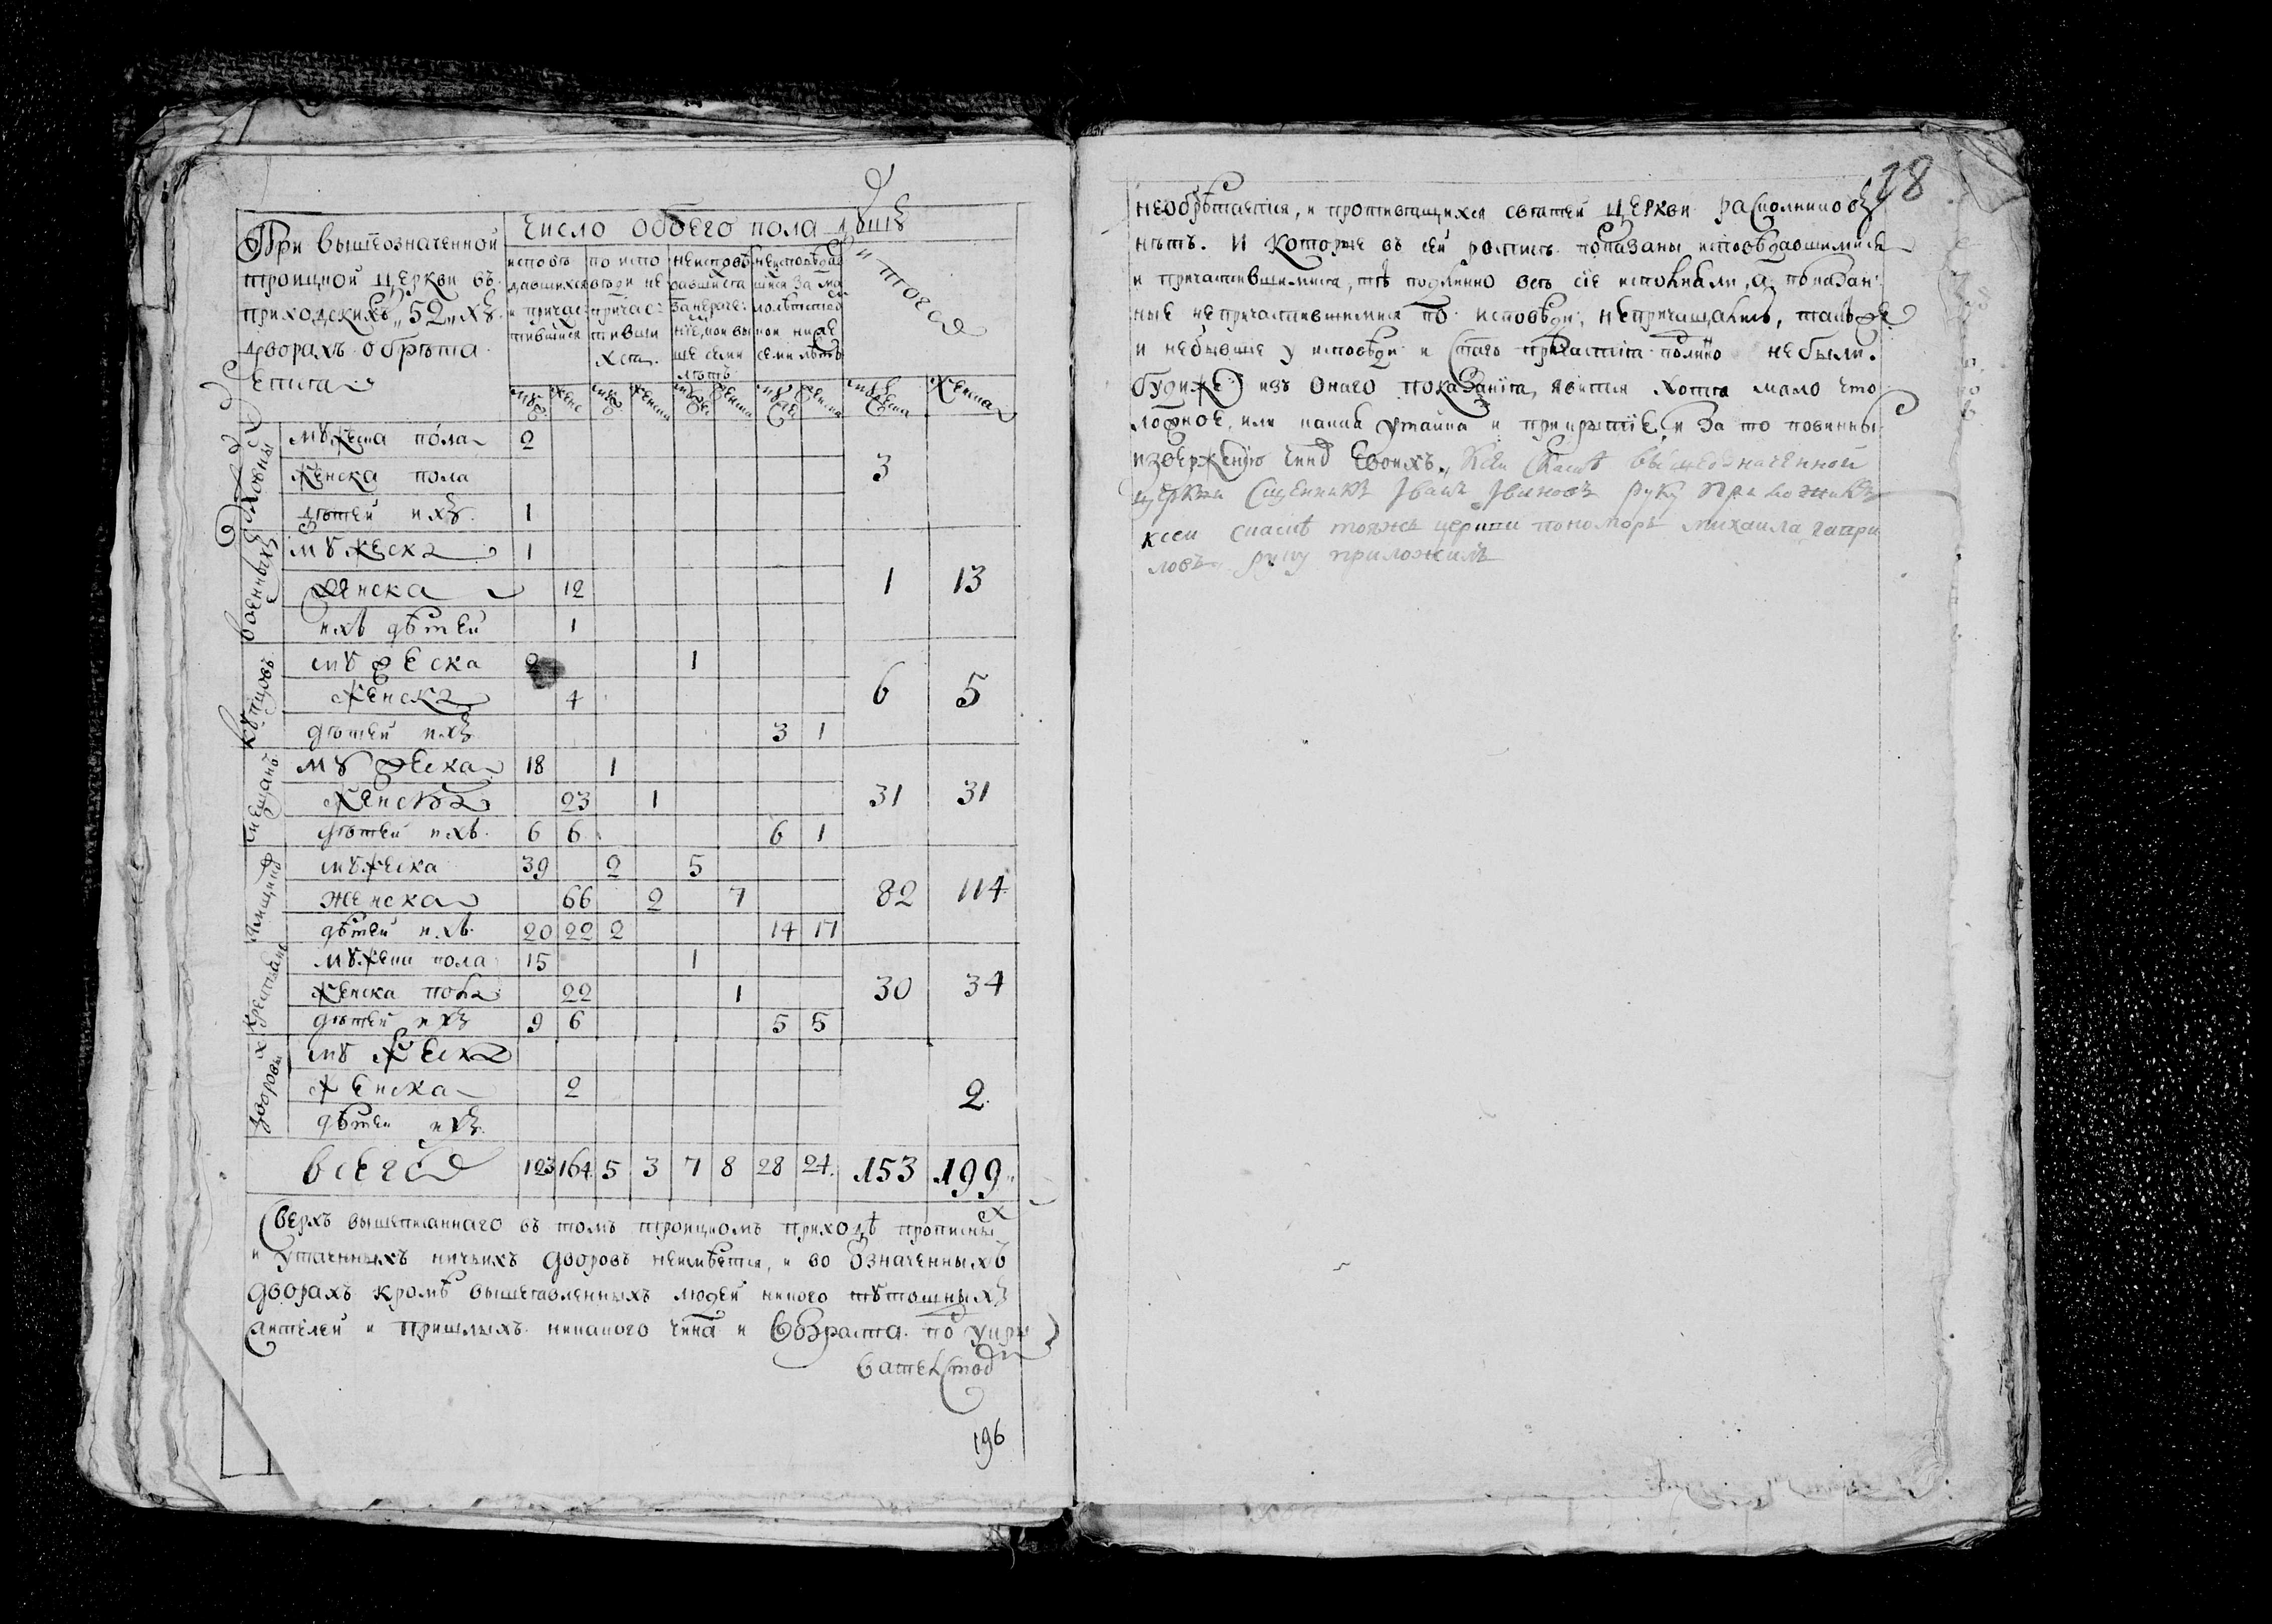 При вышеозначенной
троицкой церкви въ
приходскихъ „52„ хъ
дворахъ обрѣта
ется
Число обоего пола душъ
исповѣ
давшихся
и причас
тившися
по испо
вѣди не
причас
тивши
хся
неисповѣ
давшихся
за нераче
ніемъ, кои вы
ше семи
лѣтъ
неисповѣдав
шихся за ма
лолѣтством
кои ниже
семи лѣтъ
итого
муж женс муж женска муж женска муж женска мужеска женска
Духовны
мужеска пола 2
женска пола
детей ихъ 1
3
военныхъ
мужеска 1
женска 12
ихъ дѣтей 1
1 13
купцовъ
мужеска 2 1
женска 4
дѣтей ихъ 3 1
6 5
мещанъ
мужеска 18 1
женска 23 1
дѣтей ихъ 6 6 6 1
31 31
ямщиковъ
мужеска 39 2 5
женска 66 2 7
дѣтей ихъ 20 22 2 14 17
82 114
крестьянъ
мужеска пола 15 1
женска пола 22 1
дѣтей ихъ 9 6 5 5
30 34
дворовых
мужеска
женска 2
дѣтей ихъ
2
всего 123 164 5 3 7 8 28 24 153 199
Сверхъ вышеписаннаго въ томъ троицкомъ приходѣ прописных
и утаенныхъ ничьихъ дворовъ неимѣется, и во означенныхъ
дворахъ кромѣ вышеявленныхъ людей никого тутошныхъ
жителей и пришлыхъ никакого чина и возраста по укры
вательству
196
28
необрѣтается, и противящихся святей церкви расколниковъ
нѣтъ. И которые въ сей росписи показаны исповѣдавшимися
и причастившимися, тѣ подлинно всѣ сіе исполняли, а показан
ные непричастившимися по исповѣди, непричащались, также
и небывшие у исповѣди и Стаго причастія подлинно небыли.
буде же изъ онаго показанія, явится хотя мало что
ложное, или какая утайка и прикрытіе, и за то повинны
изверженію чиновъ своихъ. К сей скаске вышеозначенной
церкви Сщенникъ Іванъ Івановъ руку приложилъ
ксеи скаскѣ тояжъ церкви пономорь михаила гаври
ловъ руку приложилъ